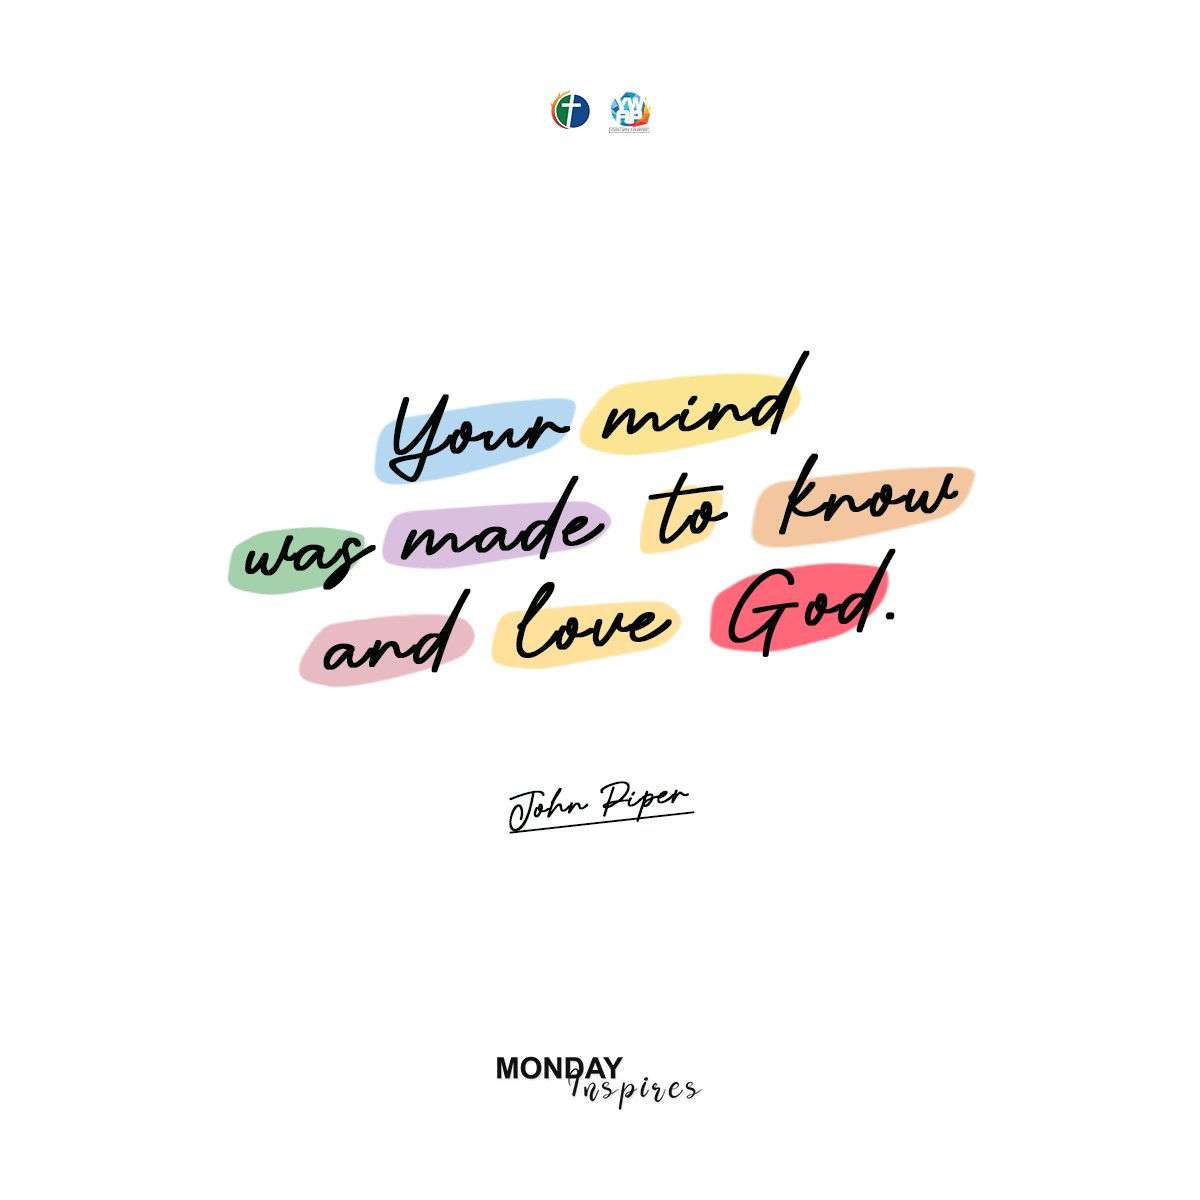 YW
AP
Your mind
was made to know
and love God.
John Piper
MONDAY
Inspires